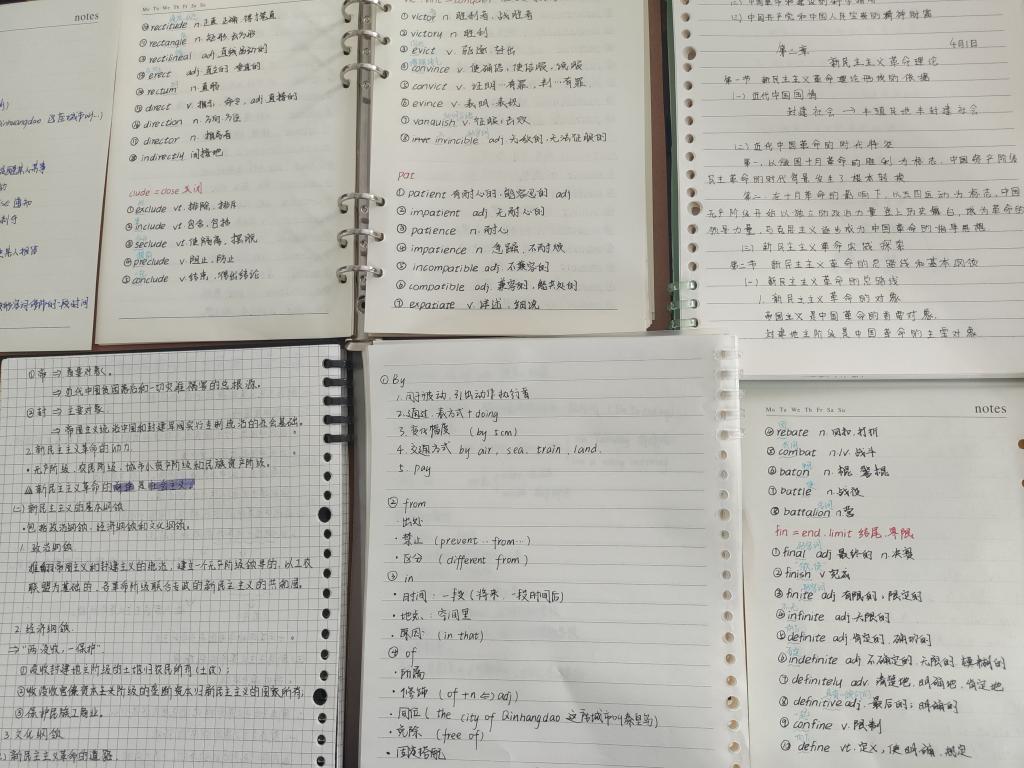 notes
Mo Tu We Th Fr Sa Su
rectitude n. 正直 正确
rectangle n. 矩形
rectilineal adj 直线
⑩ erect adj 直立的 垂直的
rectum n. 直肠
direct v. 指示 命令, adj 直接的
direction n. 方向.方位
director n. 指导者
indirectly 间接地
clude = close 关闭
① exclude vt. 排除, 排斥
② include vt 包含, 包括
③ seclude vt 使隔离, 摆脱
④ preclude v. 阻止, 防止
⑤ conclude v. 结束, 得出结论
① victor n. 胜利者, 战胜者
② victory n 胜利
③ evict v. 驱逐
④ convince v. 使确信, 使信服, 说服
⑤ convict v. 证明…有罪, 判…有罪
⑥ evince v. 表明. 表现
⑦ vanquish v. 征服. 击败
⑧ invincible adj 无敌的, 无法征服的
pat
① patient 有耐心的, 能容忍的 adj
② impatient adj 无耐心的
③ patience n. 耐心
④ impatience n 急躁, 不耐烦
⑤ incompatible adj. 不兼容的
⑥ compatible adj. 兼容的, 能共处的
⑦ expatiate v 详述, 细说
(二) 中国共产党和中国人民宝贵的精神财富
第二章 4月1日
新民主主义革命理论
第一节 新民主主义革命理论形成的依据
(一) 近代中国国情
封建社会 → 半殖民地半封建社会
(二) 近代中国革命的时代特征
第一, 以俄国十月革命的胜利为标志, 中国资产阶级
民主革命的时代背景发生了根本转换
第二. 在十月革命的影响下, 以五四运动为标志, 中国
无产阶级开始以独立的政治力量登上历史舞台, 成为革命的
领导力量, 马克思主义逐步成为中国革命的指导思想
(三) 新民主主义革命实践探索
第二节 新民主主义革命的总路线和基本纲领
(一) 新民主主义革命的总路线
1. 新民主主义革命的对象
帝国主义是中国革命的首要对象.
封建地主阶级是中国革命的主要对象
① 帝 ⇒ 首要对象.
⇒ 近代中国贫困落后和一切灾难祸害的总根源.
② 封 ⇒ 主要对象
⇒ 帝国主义统治中国和封建军阀实行专制统治的社会基础.
2. 新民主主义革命的动力
· 无产阶级. 农民阶级. 城市小资产阶级和民族资产阶级.
△ 新民主主义革命的前途是社会主义.
(二) 新民主主义的基本纲领
· 包括政治纲领. 经济纲领和文化纲领.
1. 政治纲领
推翻帝国主义和封建主义的统治, 建立一个无产阶级领导的, 以工农
联盟为基础的, 各革命阶级联合专政的新民主主义的共和国.
2. 经济纲领
⇒ "两没收, 一保护".
① 没收封建地主阶级的土地归农民所有 (土改);
② 没收官僚资本主义阶级的垄断资本归新民主主义的国家所有;
③ 保护民族工商业.
3. 文化纲领
新民主主义革命的道路.
① By
1. 用于被动. 引出动作执行者
2. 通过. 表方式 + doing
3. 变化幅度 (by 5cm)
4. 交通方式 by air, sea, train, land.
5. pay
② from
· 出处
· 禁止 (prevent … from …)
· 区分 (different from)
③ in
· 时间: 一段 (将来, 一段时间后)
· 地点: 空间里
· 原因 (in that)
④ of
· 所属
· 修饰 (of + n ⇔ adj)
· 同位 (the city of Qinhangdao 这座城市叫秦皇岛)
· 免除 (free of)
· 固定搭配
Mo Tu We Th Fr Sa Su notes
rebate n. 回扣, 打折
combat n./v. 战斗
baton n. 棍 警棍
⑦ battle n. 战役
⑧ battalion n 营
fin = end. limit 结尾. 界限
① final adj 最终的 n. 决赛
② finish v 完成
③ finite adj 有限的, 限定的
④ infinite adj 无限的
⑤ definite adj 肯定的, 确切的
⑥ indefinite adj 不确定的, 无限的, 模糊的
⑦ definitely adv. 清楚地, 明确地, 肯定地
⑧ definitive adj. 最后的; 明确的
⑨ confine v. 限制
⑩ define vt. 定义, 使明确, 规定